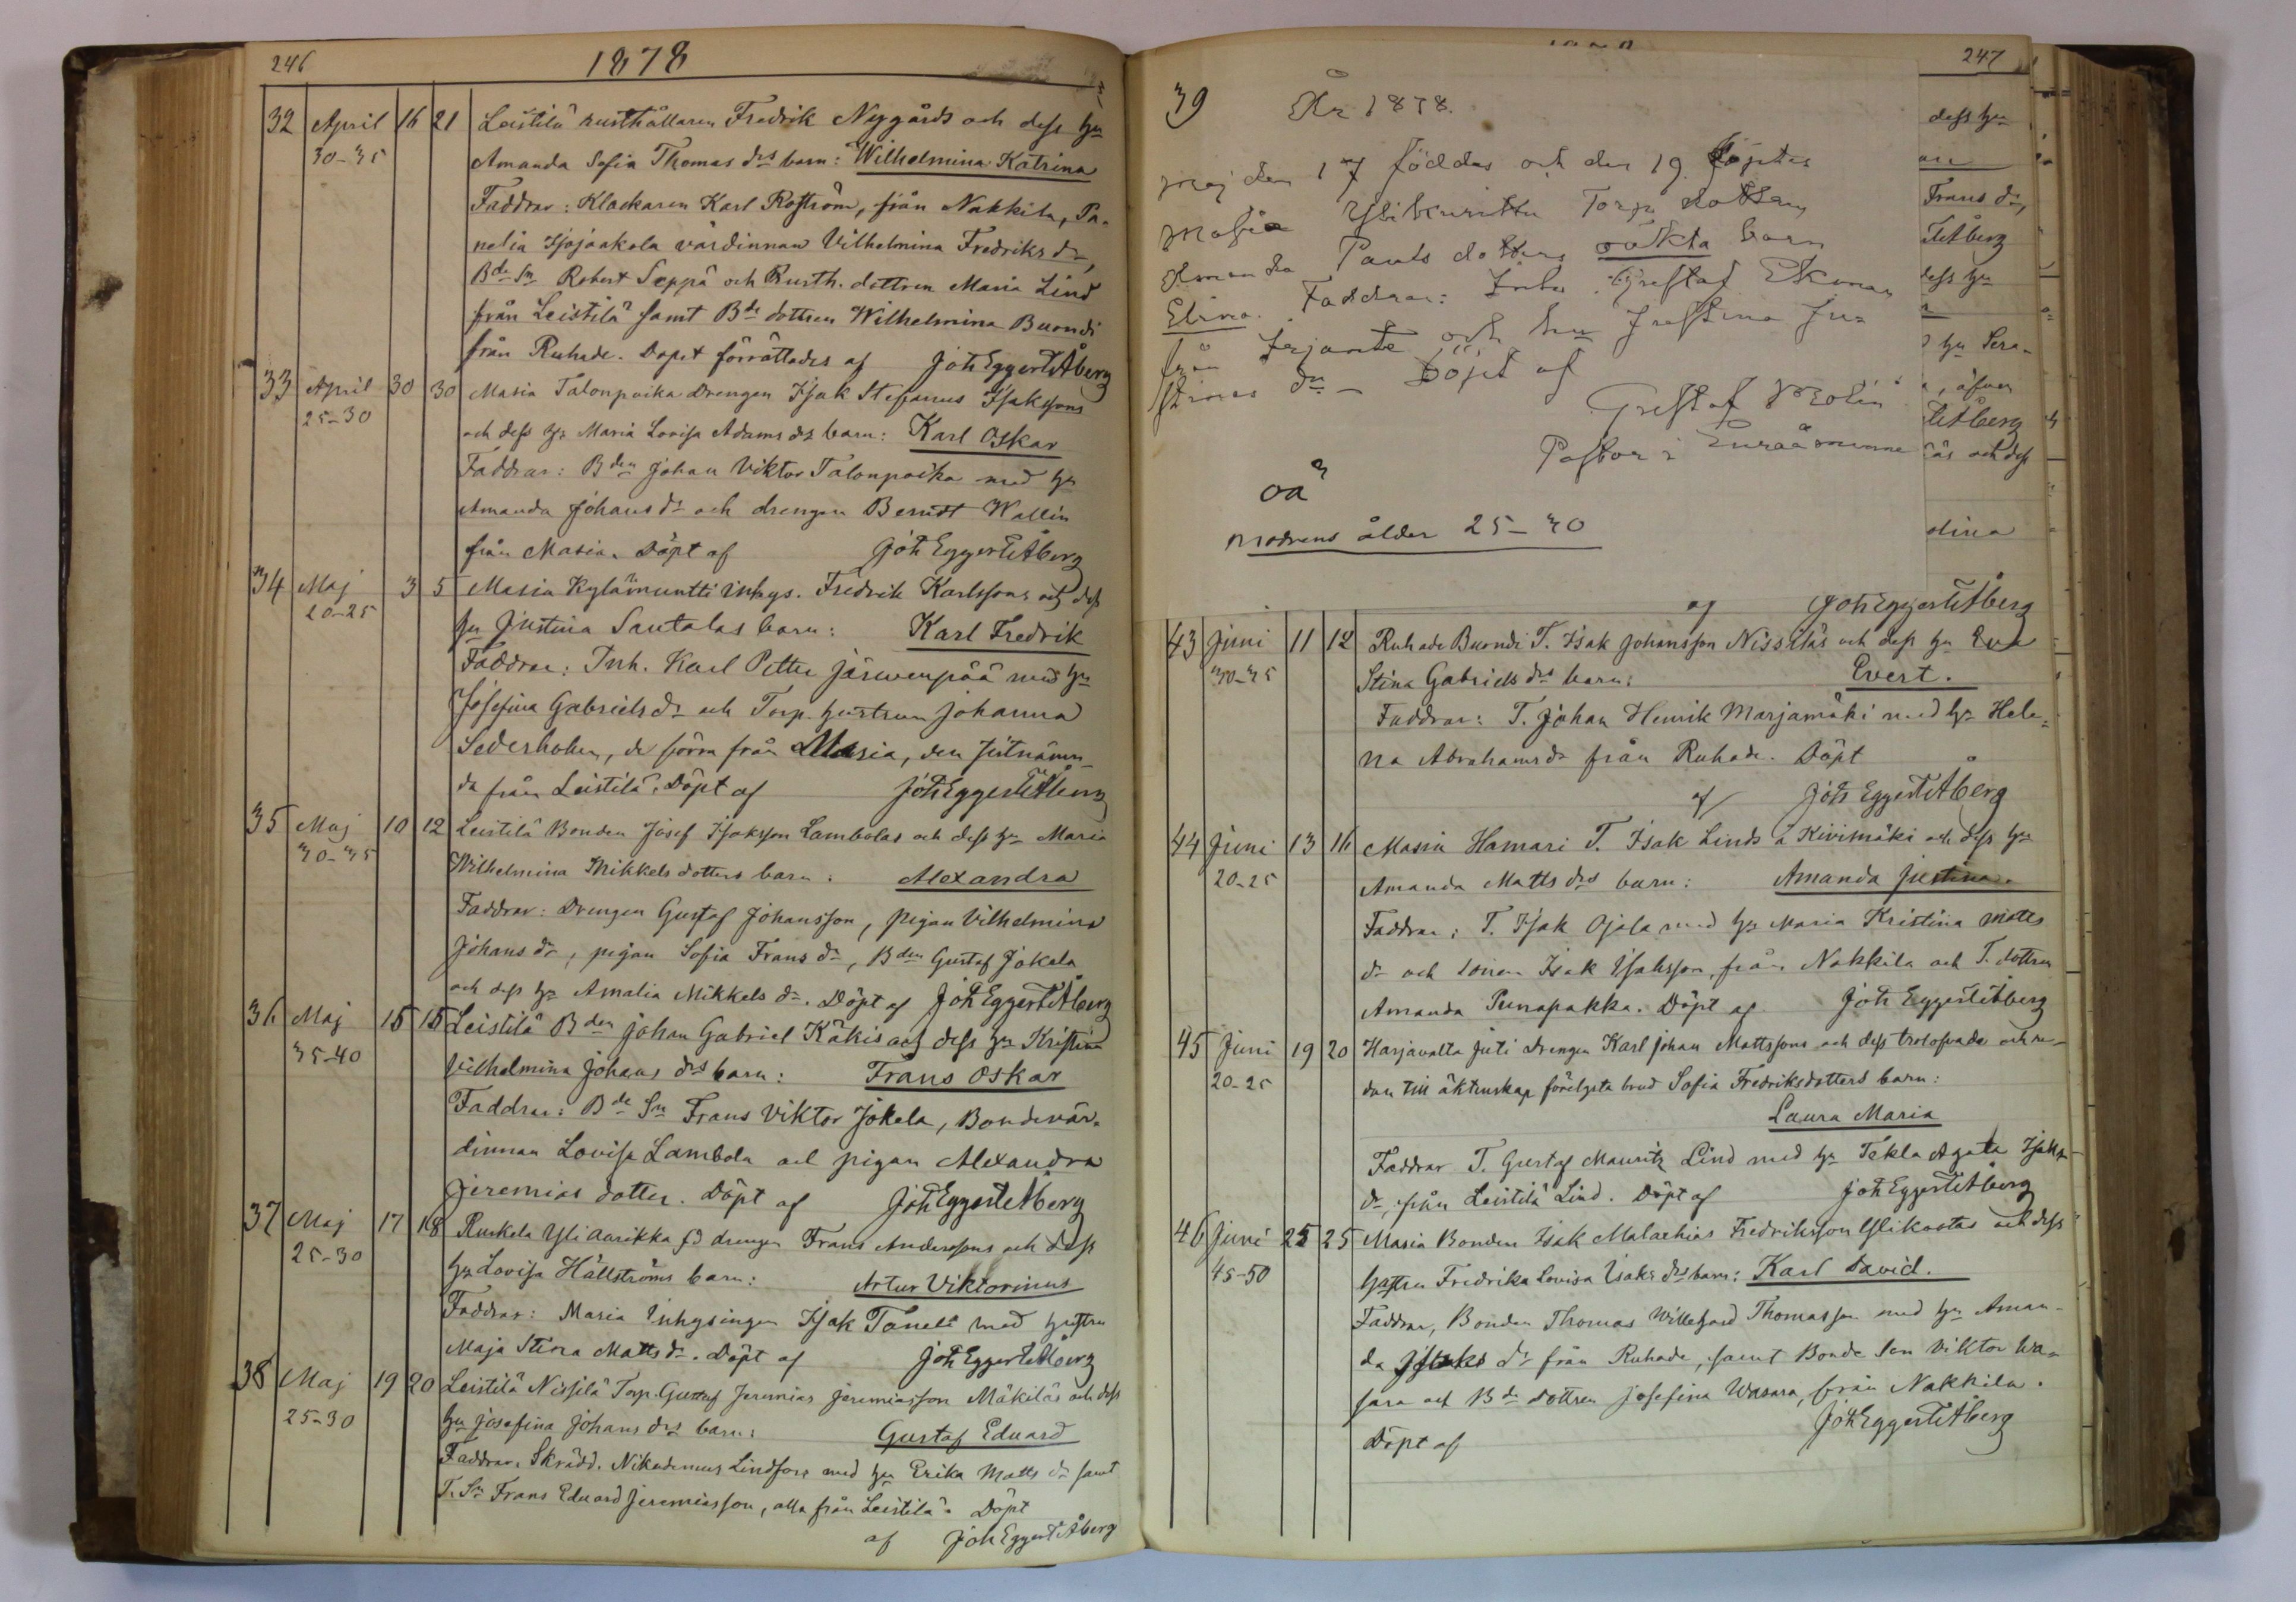 246
1878
32 April 16 21 Leistilä rusthållaren Fredrik Nygårds och dess hu
30-35 Amanda Sofia Thomas drs barn: Wilhelmina Katrina
Faddrar: Klockaren Karl Roström, från Nakkila, Pa-
nelia Isojaakola värdinnan Vilhelmina Fredriks dr,
Bde Sn Robert Seppä och Rusth. dottren Maria Lind
från Leistilä samt Bde dottren Wilhelmina Buondi
från Ruhade. Dopet förrättades af Joh Eggert Åberg
33 April 30 30 Masia Talonpoika Drengen Isak Stefanus Isakssons
25-30 och dess hu Maria Lovisa Adams drs barn: Karl Oskar
Faddrar: Bden Johan Viktor Talonpoika med hu
Amanda Johans dr och drengen Berndt Wallin
från Masia. Döpt af Joh Eggert Åberg
34 Maj 3 5 Masia Kylämuntti inhys. Fredrik Karlssons och dess
20-25 hu Justina Santalas barn: Karl Fredrik
Faddrar: Inh. Karl Petter Järvenpää med hu
Josefina Gabriels dr och Torp. hustrun Johanna
Sederholm, de förra från Masia, den sistnämn-
da från Leistilä. Döpt af Joh Eggert Åberg
35 Maj 10 12 Leistilä Bonden Josef Isaksson Lambolas och dess hu Maria
30-35 Wilhelmina Mikkels dotters barn: Alexandra
Faddrar: Drengen Gustaf Johansson, pigan Vilhelmina
Johans dr, pigan Sofia Frans dr, Bden Gustaf Jokela
och dess hu Amalia Mikkels dr. Döpt af Joh Eggert Åberg
36 Maj 15 15 Leistilä Bden Johan Gabriel Käkis och dess hu Kristina
35-40 Vilhelmina Johans drs barn: Frans Oskar
Faddrar: Bde Sn Frans Viktor Jokela, Bondevär-
dinnan Lovisa Lambola och pigan Alexandra
Jeremias dotter. Döpt af Joh Eggert Åberg
37 Maj 17 18 Ruskela Yli Aarikka fd drengen Frans Anderssons och dess
25-30 hu Lovisa Hällströms barn: Artur Viktorinus
Faddrar: Masia Inhysingen Isak Taneli med hustru
Maja Stina Matts dr. Döpt af Joh Eggert Åberg
38 Maj 19 20 Leistilä Nissilä Torp. Gustaf Jeremias Jeremiasson Mäkiläs och dess
25-30 hu Josefina Johans drs barn: Gustaf Eduard
Faddrar Skrädd. Nikodemus Lindfors med hu Erika Matts dr samt
T. Sn Frans Eduard Jeremiasson, alla från Leistilä. Döpt
af Joh Eggert Åberg
247
39 År 1878.
Maj den 17 föddes och den 19. döptes
Masia Ylikuvittu Torp dottern
Amanda Pauls dotters oäkta barn
Elina. Faddrar: Inhs Gustaf Ekman
från och hu Justina Ju-
stinas dr - Döpt af
Gustaf Molin
Pastor i Euraåminne
oä
Modrens ålder 25-30
dess hu
Frans dr,
Åberg
dess hu
hu Sera-
, äfven
Åberg
och dess
dina
af Joh Eggert Åberg
43 Juni 11 12 Ruhade Buondi T. Isak Johansson Nissiläs och dess hu Eva
30-35 Stina Gabriels drs barn: Evert.
Faddrar: T. Johan Henrik Marjamäki med hu Hele-
na Abrahams dr från Ruhade. Döpt
af Joh Eggert Åberg
44 Juni 13 16 Masia Hamari T. Isak Linds å Kivimäki och dess hu
20-25 Amanda Matts drs barn: Amanda Justina.
Faddrar: T. Isak Ojala med hu Maria Kristina Matts
dr och sonen Isak Isaksson, från Nakkila och T. dottren
Amanda Punapakka. Döpt af Joh Eggert Åberg
45 Juni 19 20 Harjavalta Juti Drengen Karl Johan Mattssons och dess trolofvade och re-
20-25 dan till äktenskap förelysta brud Sofia Fredriksdotters barn:
Laura Maria
Faddrar T. Gustaf Mauritz Lind med hu Tekla Agata Isaks
dr, från Leistilä Lind. Döpt af Joh Eggert Åberg
46 Juni 25 25 Masia Bonden Isak Malachias Fredriksson Ylikootas och dess
45-50 hustru Fredrika Lovisa Isaks drs barn: Karl David.
Faddrar, Bonden Thomas Willehard Thomasson med hu Aman-
da Isaks dr från Ruhade, samt Bonde Son Viktor Wa-
sara och Bde dottren Josefina Wasara, från Nakkila.
Döpt af Joh Eggert Åberg